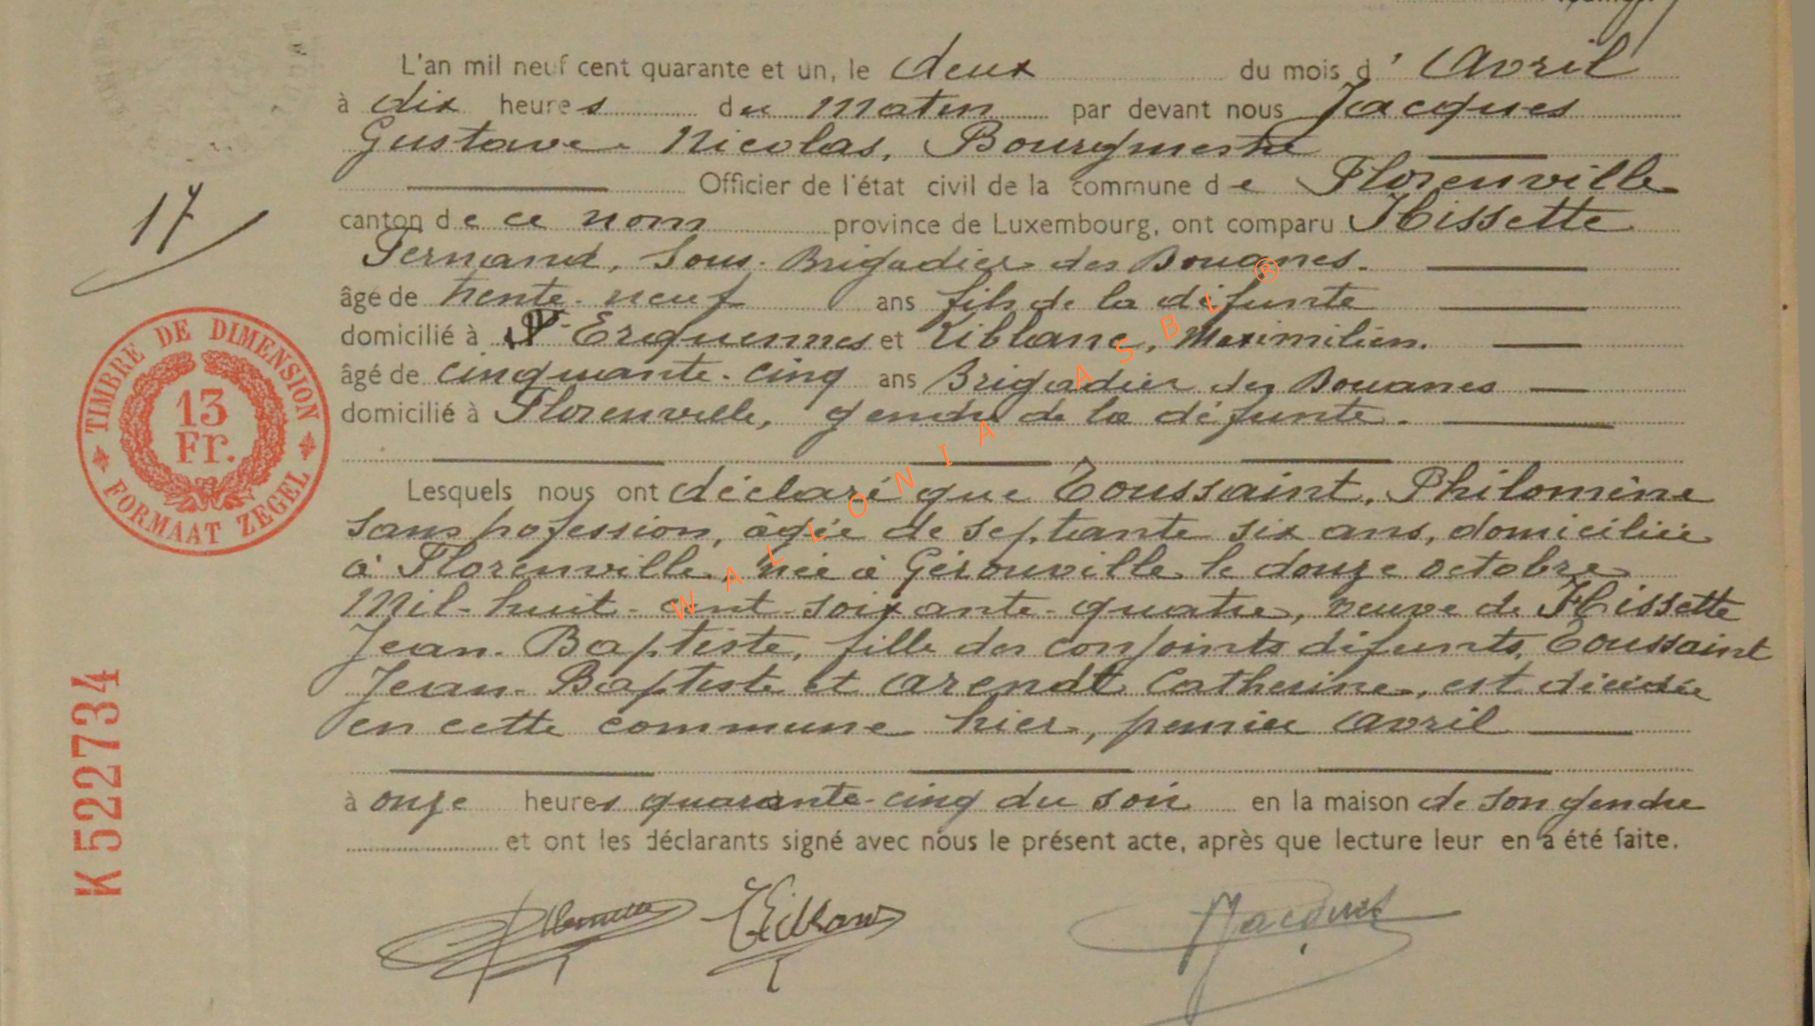 L'an mil neuf cent quarante et un, le deux du mois d' Avril
à dix heures du matin par devant nous Jacques
Gustave Nicolas, Bourgmestre
Officier de l'état civil de la commune de Florenville
canton de ce nom province de Luxembourg, ont comparu Hissette
Fernand, Sous-Brigadier des Douanes.
âgé de trente-neuf ans fils de la défunte
domicilié à Erquennes et Kiblane, Maximilien.
âgé de cinquante-cinq ans Brigadier des Douanes
domicilié à Florenville, gendre de la défunte.
Lesquels nous ont déclaré que Toussaint, Philomène
sans profession, âgée de septante six ans, domiciliée
à Florenville, née à Gérouville le douze octobre
Mil-huit-cent-soixante-quatre, veuve de Hissette
Jean-Baptiste, fille des conjoints défunts, Toussaint
Jean-Baptiste et Arendt Catherine, est décédée
en cette commune hier, premier Avril
à onze heures quarante-cinq du soir en la maison de son gendre
et ont les déclarants signé avec nous le présent acte, après que lecture leur en a été faite.
Jacques
17
TIMBRE DE DIMENSION
13
Fr.
FORMAAT ZEGEL
K 522734
WALLONIA ASBL ®